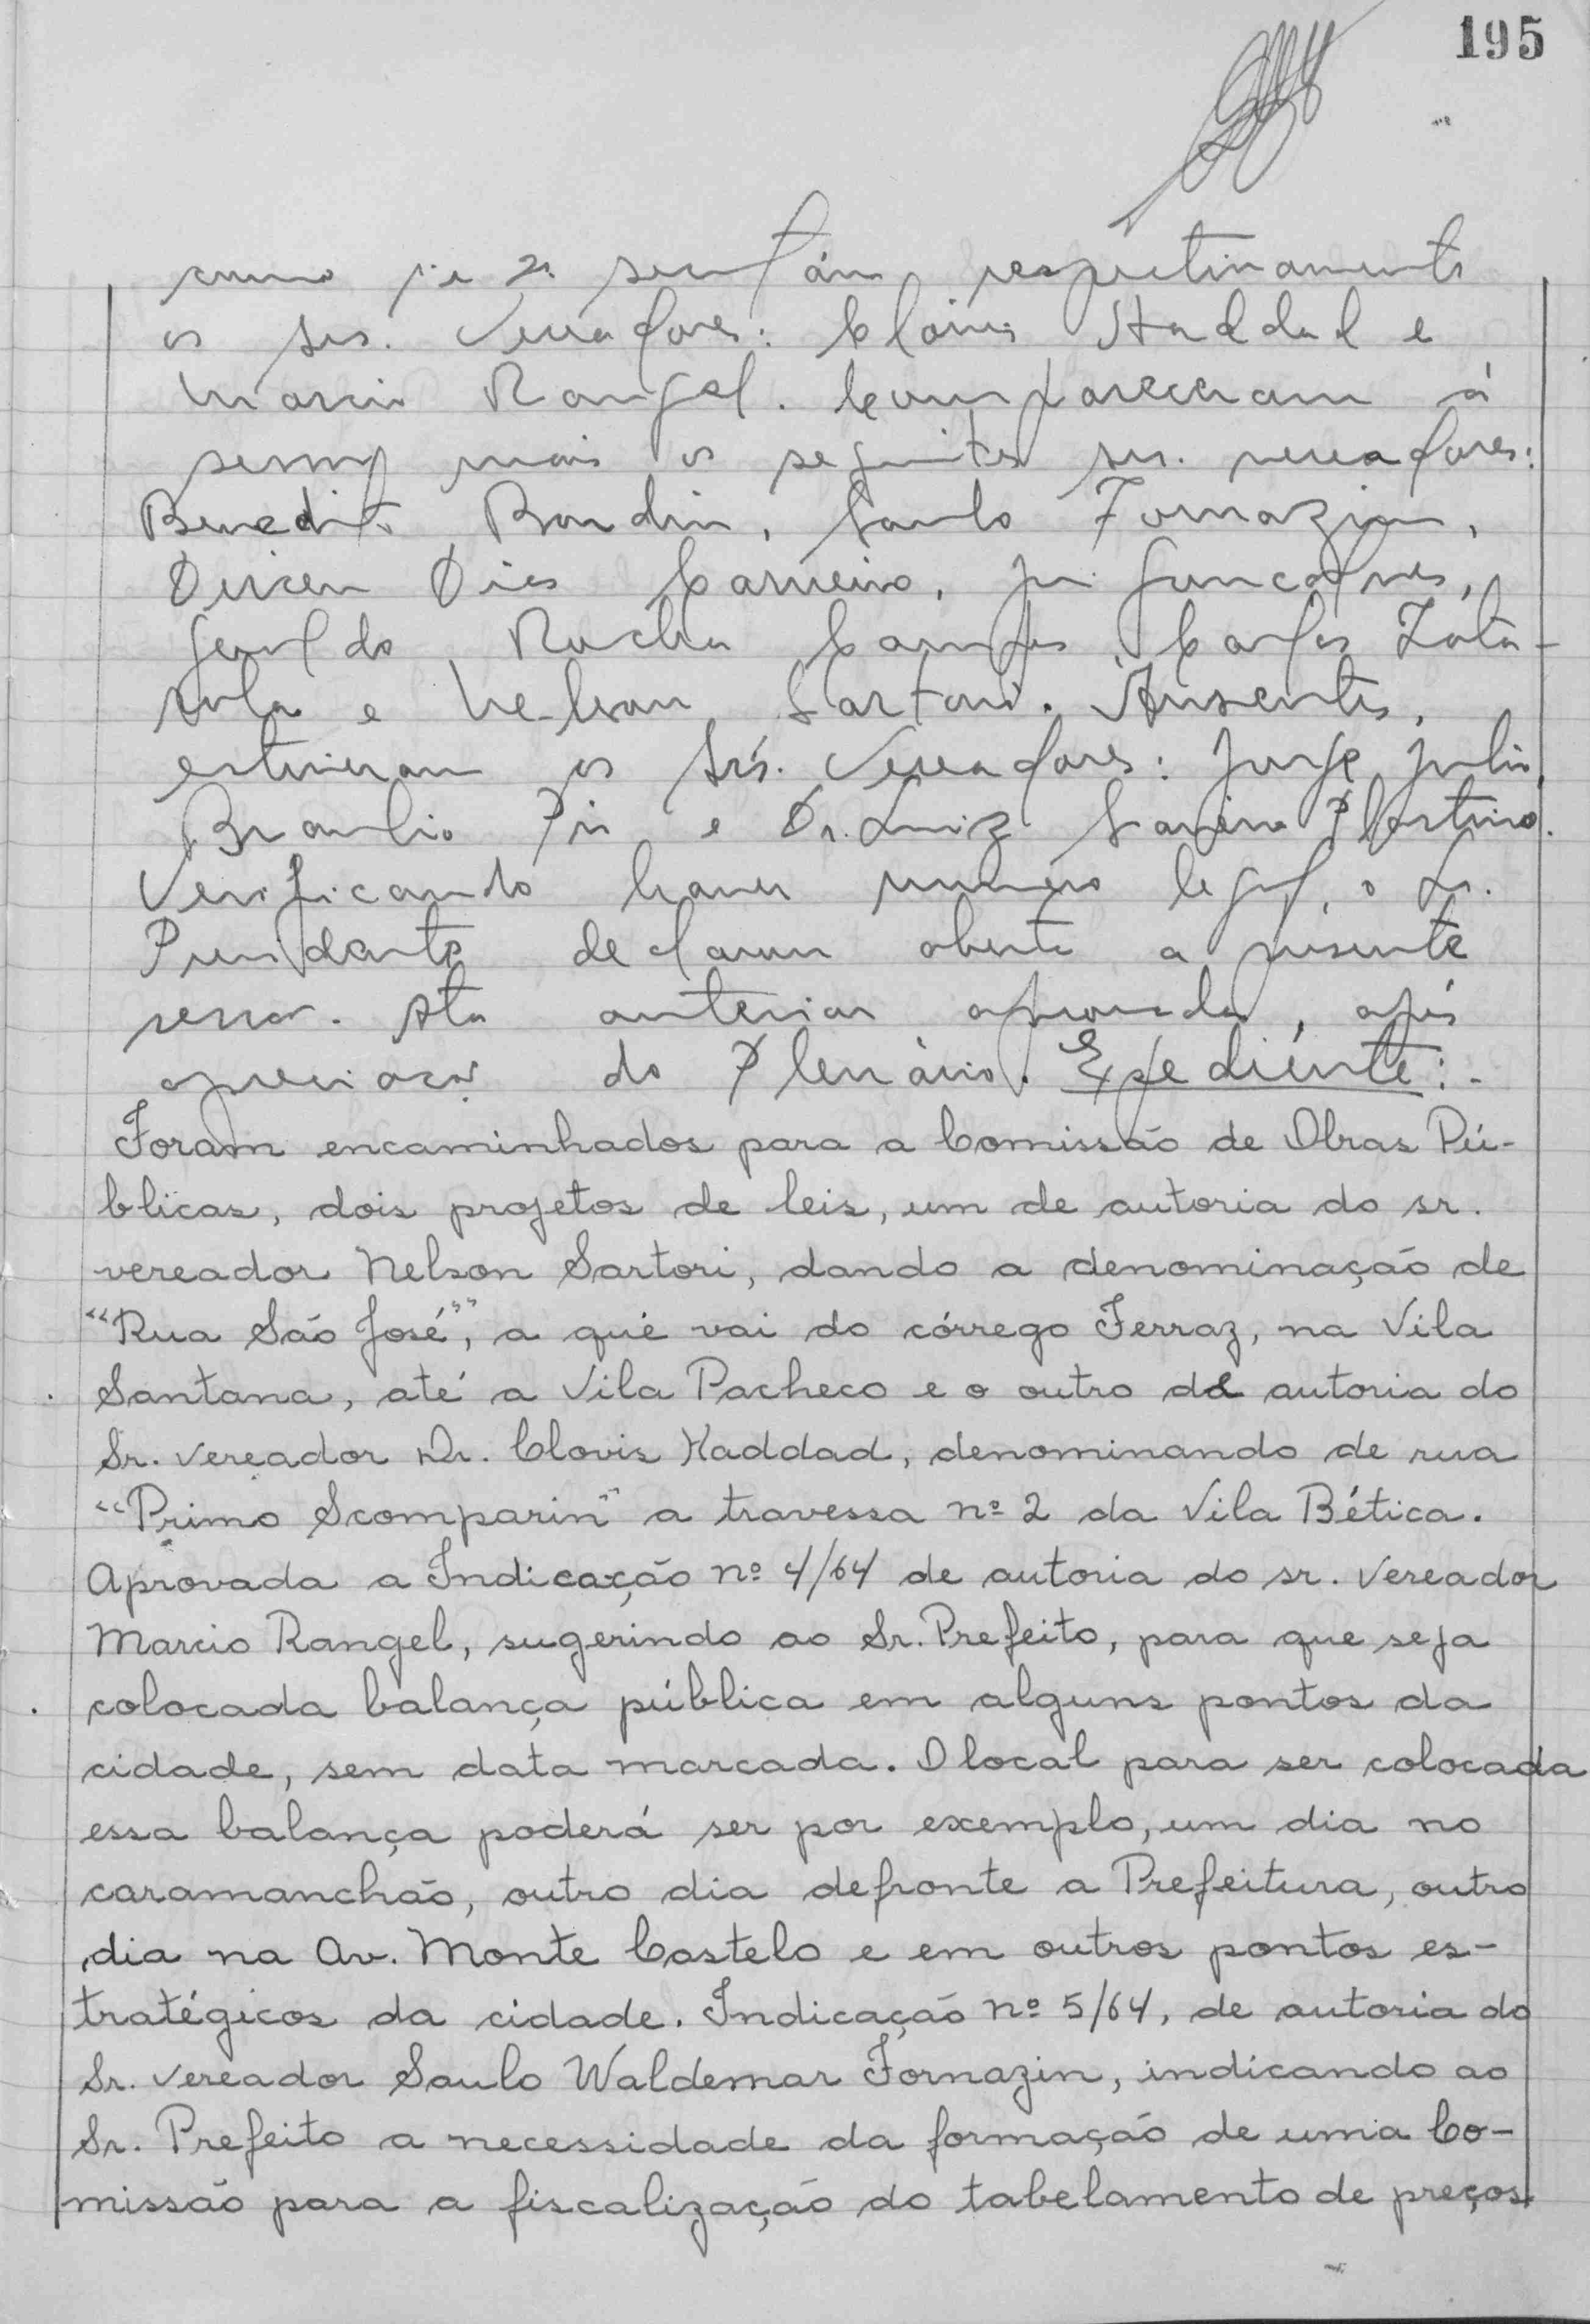 195
como 1º e 2º secretário, respectivamente
os srs. Vereadores: Clóvis Haddad e
Marcio Rangel. Compareceram à
sessão mais os seguintes srs. vereadores:
Benedito Bondin, Saulo Fornazin,
Dirceu Dias Carneiro, Gonçalves,
Geraldo Rocha Campos, Carlos Zota-
rola e Nelson Sartori. Ausentes,
estiveram os Srs. Vereadores: Jorge Julio,
Braulio Pio e Dr. Luiz
Verificando haver número legal, o Sr.
Presidente declarou aberta a presente
sessão. Ata anterior aprovada, após
apreciação do Plenário. Expediénte:-
Foram encaminhados para a Comissão de Obras Pú-
blicas, dois projetos de leis, um de autoria do sr.
vereador Nelson Sartori, dando a denominação de
"Rua São José", a que vai do córrego Ferraz, na Vila
Santana, até a Vila Pacheco e o outro de autoria do
Sr. vereador Dr. Clovis Haddad, denominando de rua
"Primo Scomparin" a travessa nº 2 da Vila Bética.
Aprovada a Indicação nº 4/64 de autoria do sr. vereador
Marcio Rangel, sugerindo ao Sr. Prefeito, para que seja
colocada balança pública em alguns pontos da
cidade, sem data marcada. O local para ser colocada
essa balança poderá ser por exemplo, um dia no
caramanchão, outro dia defronte a Prefeitura, outro
dia na Av. Monte Castelo e em outros pontos es-
tratégicos da cidade. Indicação nº 5/64, de autoria do
Sr. vereador Saulo Waldemar Fornazin, indicando ao
Sr. Prefeito a necessidade da formação de uma Co-
missão para a fiscalização do tabelamento de preços